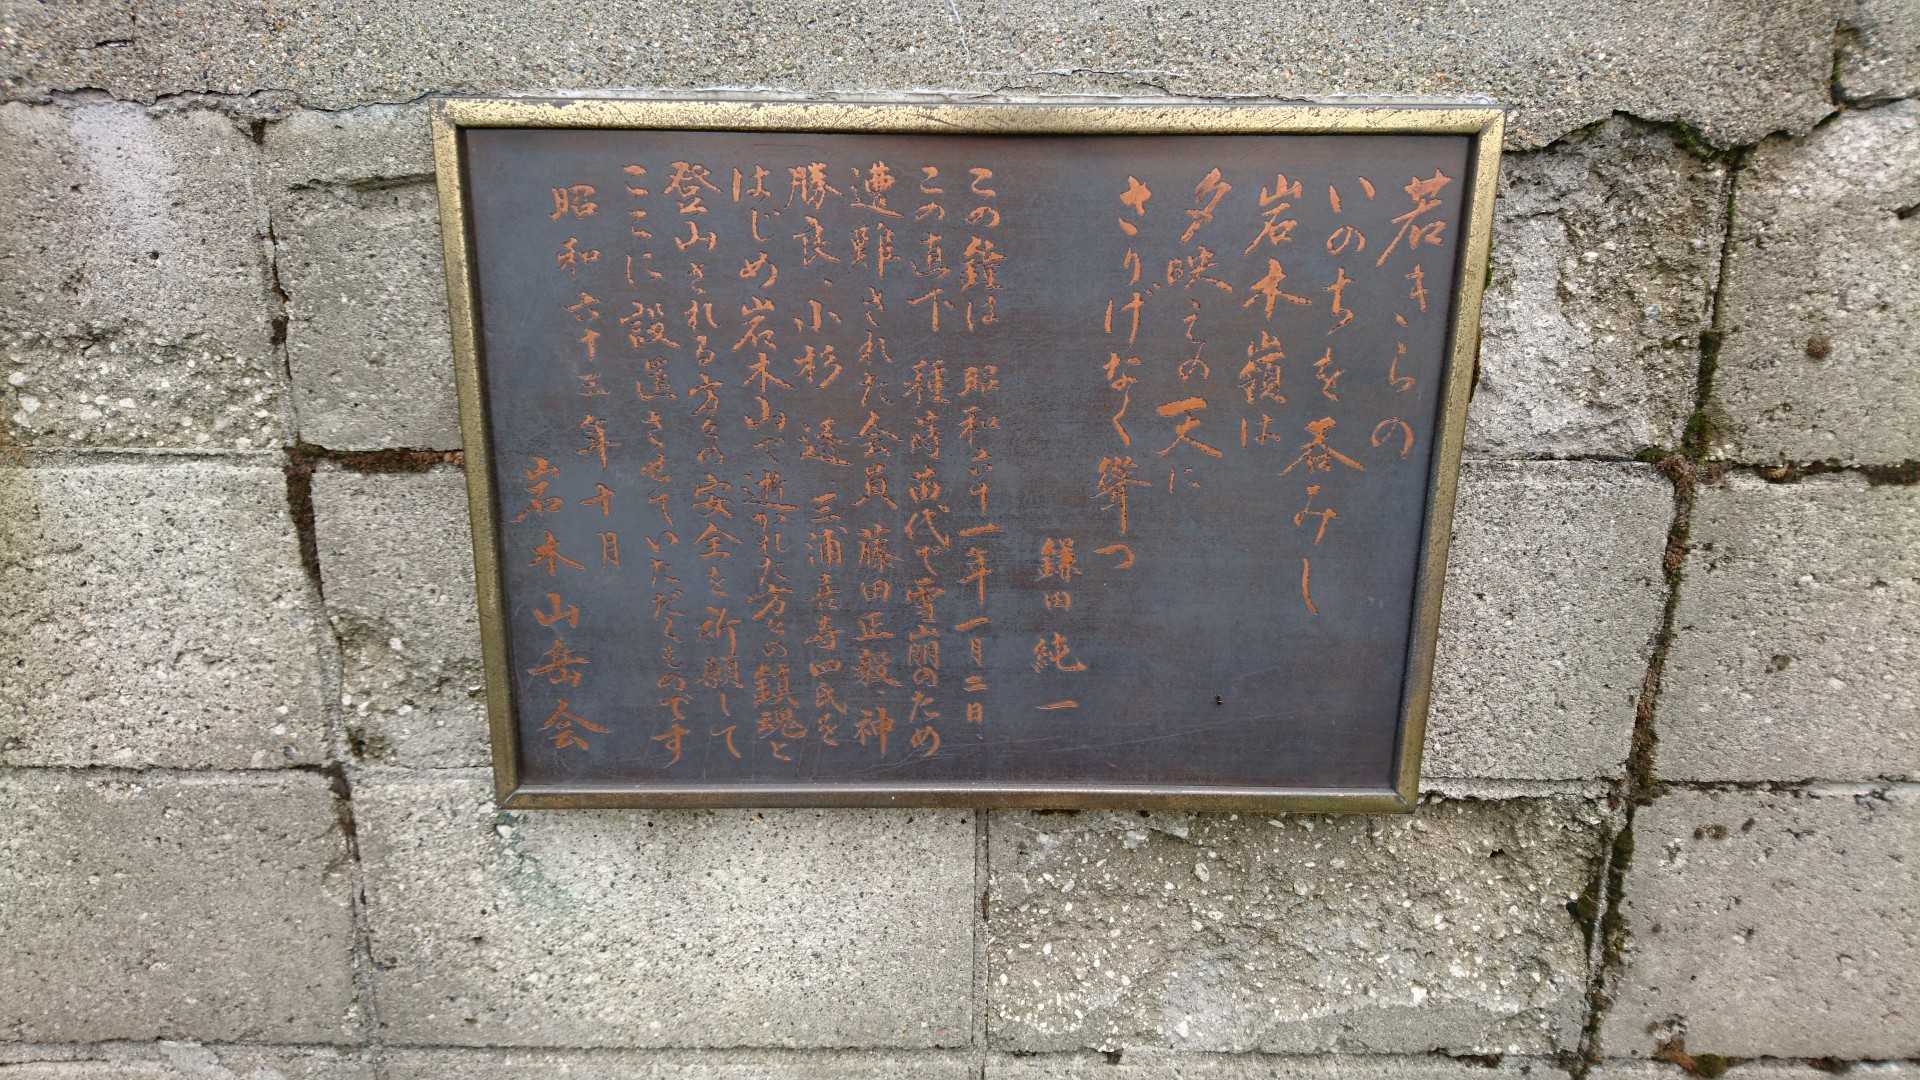 若きらの
いのちを呑みし
岩木嶺は
夕映えの天に
さりげなく聳つ
鎌田純一
この鐘は 昭和六十一年一月二日
この直下 種蒔苗代で雪崩のため
遭難された会員 藤田正毅、神
勝良、小杉 透、三浦喜寿四氏を
はじめ岩木山で逝かれた方々の鎮魂と
登山される方々の安全を祈願して
ここに設置させていただくものです
昭和六十三年十月
岩木山岳会